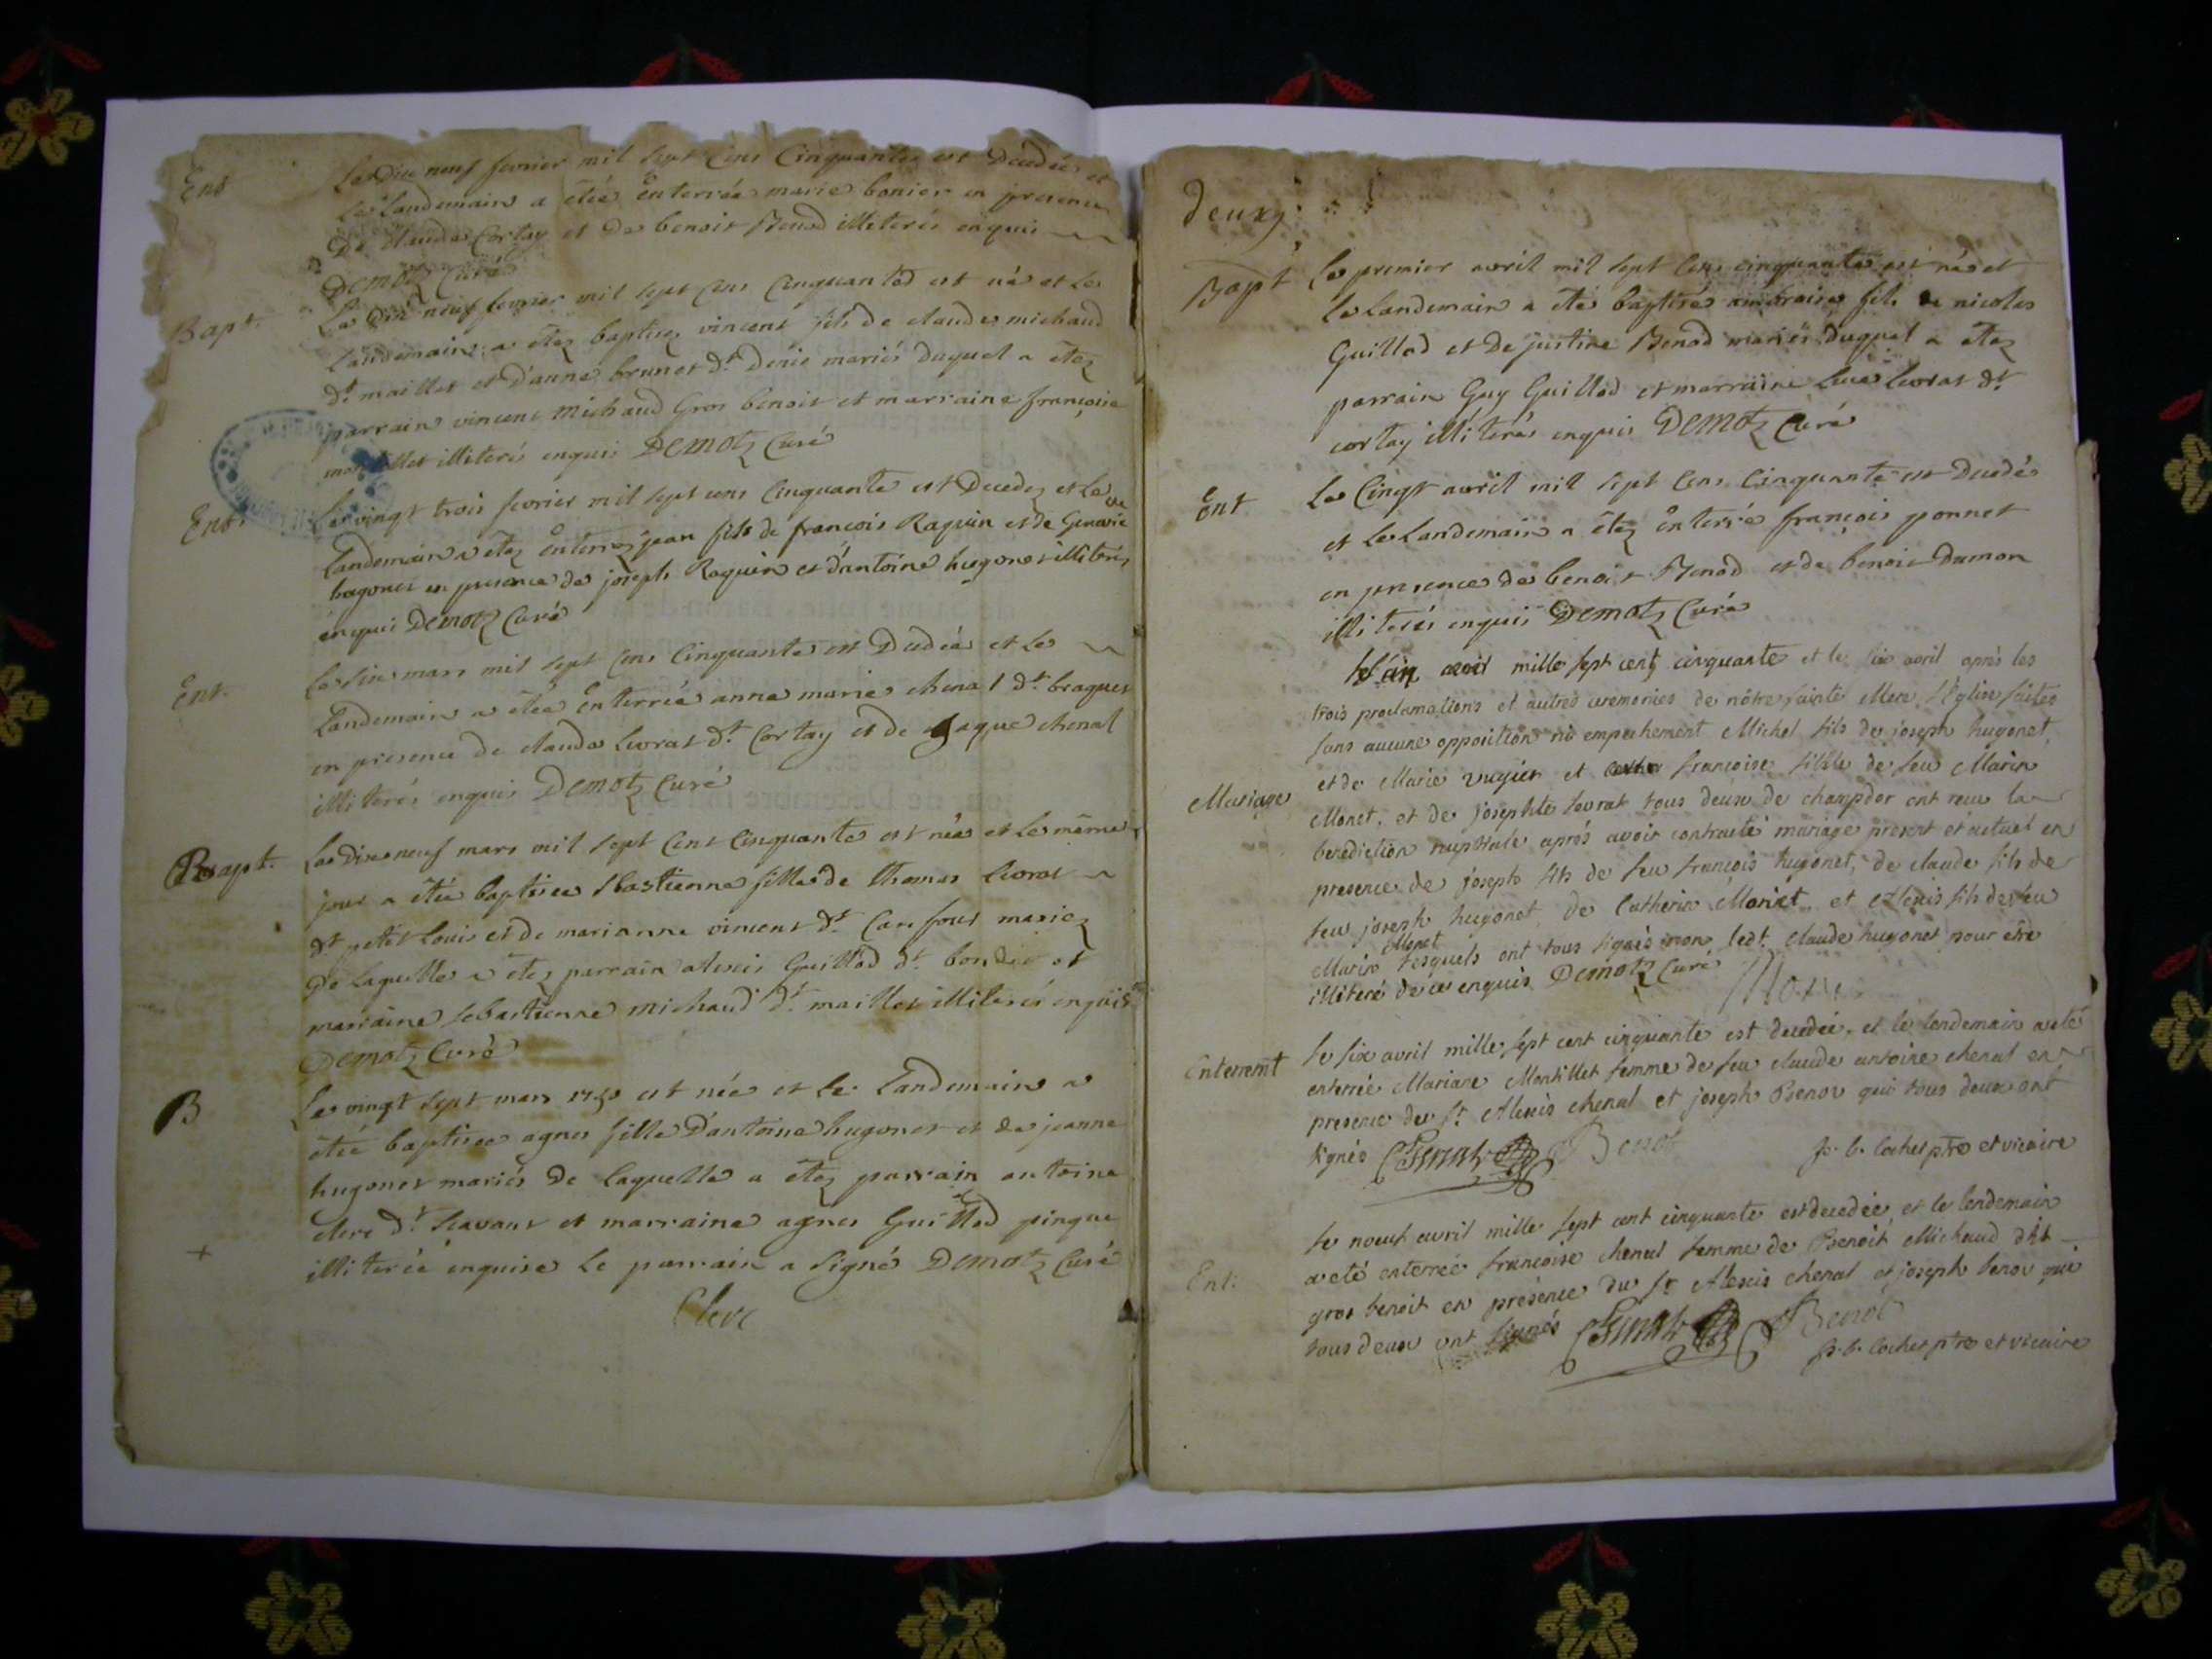 Ent
Le Dix neuf fevrier mil sept Cens Cinquante est Decedée et
le Landemain a étée Enterrée marie bonier en presence
De claude Cortay et de benoit Benod illiterés enquis
Demotz Curé
Bapt.
Le Dix neuf fevrier mil sept Cens Cinquante est né et le
landemain a étez baptisez vincent fils de claude michaud
dt. maillet et d'anne brunet dt. Denie mariés duquel a étez
parrain vincent Michaud Gros benoit et marraine françoise
illiterés enquis Demotz Curé
Ent.
Le vingt trois fevrier mil sept cens Cinquante est Decedez et le
Landemain a étez Enterrez jean fils de francois Raquin et de Genevie
ve
hugonet en presence de joseph Raquin et d'antoine hugonet illiterés
enquis Demotz Curé
Ent.
Le six mars mil sept Cens Cinquante est Dcedée et le
Landemain a étée Enterrée anne marie chenal dt. braquet
en presence de claude livrat dt. Cortay et de Jaque chenal
illiterés enquis Demotz Curé
Bapt.
Le Dix neuf mars mil sept Cent Cinquante est née et le même
jour a étée baptisée sbastienne fille de thomas livrat
dt petet Louis et de marianne vincent dt. Carefour mariez
De laquelle a étez parrain alexis Guillod dt. et
marraine sebastienne michaud dt. maillet illiterés enquis
Demotz Curé
B
Le vingt sept mars 1750 est née et le Landemain a
étée baptisée agnes fille D'antoine hugonet et de jeanne
hugonet mariés De laquelle a étez parrain antoine
clerc dt. et marraine agnes Guillod pingue
+
illiterée enquise le parrain a signé Demotz Curé
Clerc
deuxj
Bapt
Le premier avril mil sept Cens cinquante est né et
le Landemain a été baptisé ambroise fils de nicolas
Guillod et de justine Benod mariés Duquel a étez
parrain Guy Guillod et marraine Luce livrat dt
cortay illiterés enquis Demotz Curé
Ent
Le Cinqt avril mil sept Cens Cinquante est Decedé
et le Landemain a étez Enterré françois ponnet
en presence de benoit Benod et de benoit Dumon
illiterés enquis Demotz Curé
avril mille sept cent cinquante et le six avril après les
trois proclamations et autres ceremonies de nôtre sainte Mere l'Eglise faites
sans aucune opposition ni empechement Michel fils de joseph hugonet,
et de Marie et françoise fille de feu Marin
Mariage
Monet, et de josephte livrat tous deux de champdor ont reçu la
benediction nuptiale après avoir contracté mariage present et actuel en
presence de joseph fils de feu françois hugonet, de claude fils de
feu joseph hugonet, de Catherin Monet, et Alexis fils de feu
Monet
Marin lesquels ont tous signés non ledt. claude hugonet pour etre
illiteré de ce enquis Demotz Curé Monet
Enterremt
le six avril mille sept cent cinquante est decedée, et le lendemain a eté
enterrée Mariane Montillet femme de feu claude antoine chenal en
presence du sr. Alexis chenal et joseph Benor qui tous deux ont
signés Chenal Benod
j. b. Cochet ptre et vicaire
Ent:
le neuf avril mille sept cent cinquante est decedée, et le lendemain
a eté enterrée françoise chenal femme de Benoit Michaud dit
gros benoit en présence du sr Alexis chenal et joseph benor qui
tous deux ont signés Chenal Benod
j. b. Cochet ptre et vicaire